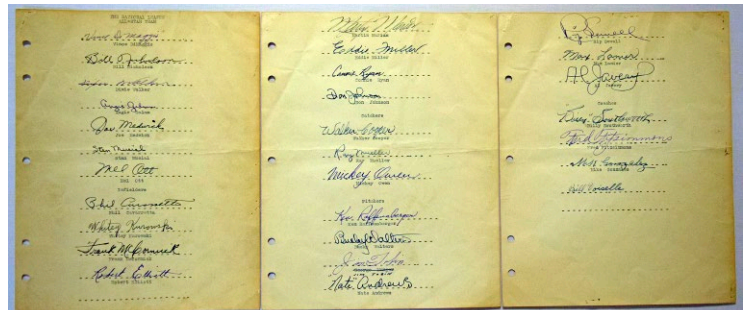 THE NATIONAL LEAGUE
ALL-STAR TEAM
Vince DiMaggio
Vince DiMaggio
Bill Nicholson
Bill Nicholson
Dixie Walker
Dixie Walker
Augie Galan
Augie Galan
Joe Medwick
Joe Medwick
Stan Musial
Stan Musial
Mel Ott
Mel Ott
Infielders
Phil Cavarretta
Phil Cavarretta
Whitey Kurowski
Whitey Kurowski
Frank McCormick
Frank McCormick
Robert Elliott
Robert Elliott
Martin Marion
Eddie Miller
Eddie Miller
Connie Ryan
Connie Ryan
Don Johnson
Don Johnson
Catchers
Walker Cooper
Walker Cooper
Ray Mueller
Ray Mueller
Mickey Owen
Mickey Owen
Pitchers
Ken Raffensberger
Ken Raffensberger
Bucky Walters
Bucky Walters
Jim Tobin
Jim Tobin
Nate Andrews
Nate Andrews
Rip Sewell
Rip Sewell
Max Lanier
Max Lanier
Al Javery
Al Javery
Coaches
Billy Southworth
Billy Southworth
Fred Fitzsimmons
Fred Fitzsimmons
Mike Gonzalez
Mike Gonzalez